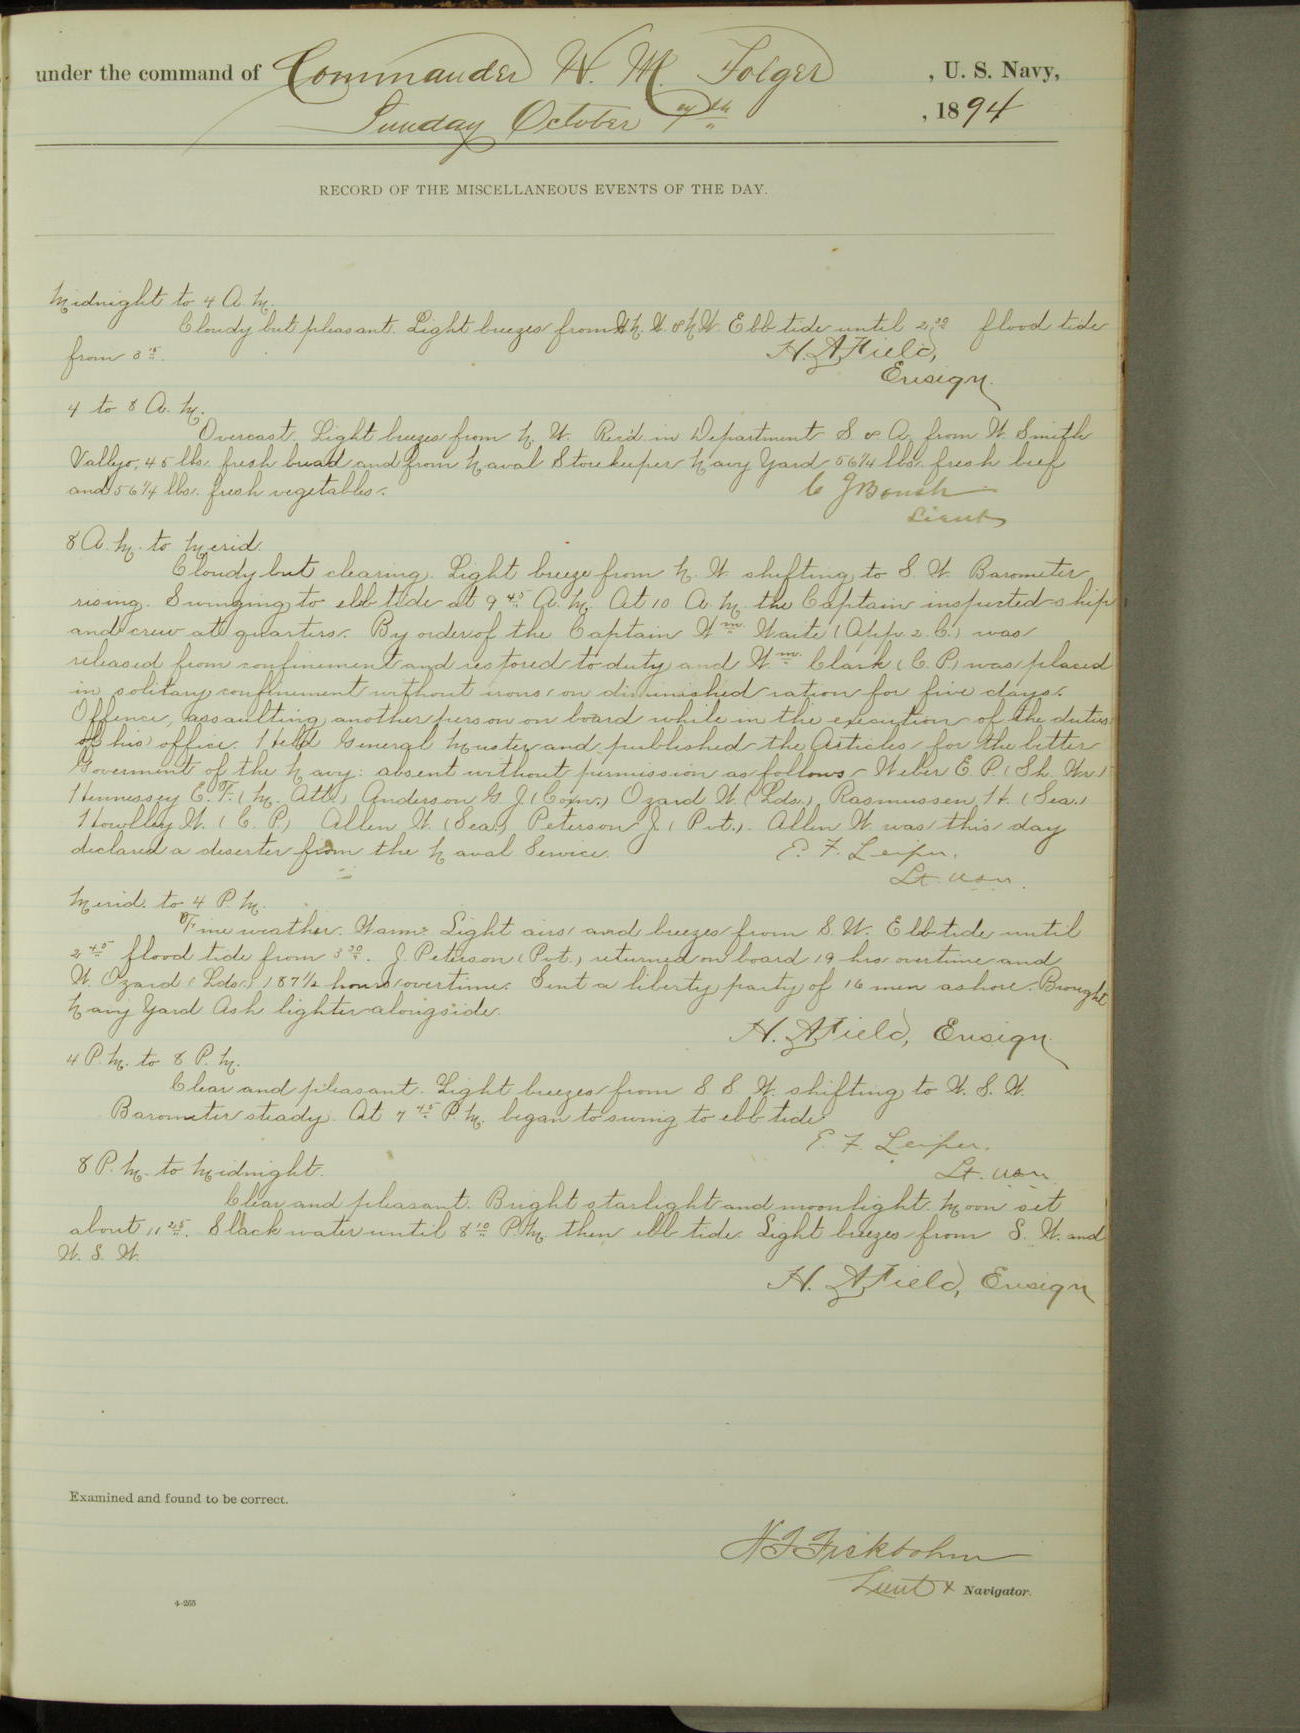 under the command of Commander W. M. Folger , U. S. Navy,
Sunday October 7th , 1894
RECORD OF THE MISCELLANEOUS EVENTS OF THE DAY.
Midnight to 4 A. M.
Cloudy but pleasant. Light breezes from N. W. Ebb tide until 2.30 flood tide
from 3 15.
H. A Field,
Ensign.
4 to 8 A. M.
Overcast. Light breezes from N. W. Rec'd in Department S. & A. from W. Smith
Vallejo, 45 lbs. fresh bread and from Naval Storekeeper Navy Yard 56 1/4 lbs. fresh beef
and 56 1/4 lbs. fresh vegetables.
C J Boush
Lieut
8 A. M. to Merid.
Cloudy but clearing. Light breeze from N. W. shifting to S. W. Barometer
rising. Swinging to ebb tide at 9 45 A. M. At 10 A. M. the Captain inspected ship
and crew at quarters. By order of the Captain Wm. Waite (App. 2. C.) was
released from confinement and restored to duty and Wm. Clark (C. P.) was placed
in solitary confinement without irons on diminished ration for five days.
Offence, assaulting another person on board while in the execution of the duties
of his office. Held General Muster and published the Articles for the better
Goverment of the Navy: absent without permission as follows - Weber E. P. (Sh. Wr.)
Hennessey E. F. (M. Att.) Anderson G. J. (Coxn.) Ozard W. (Lds.) Rasmussen, H. (Sea.)
W. (C. P.) Allen W. (Sea.) Peterson J. (Pvt.). Allen W. was this day
declared a deserter from the Naval Service.
E. F. Leiper.
Lt. USN.
Merid. to 4 P. M.
Fine weather. Warm. Light airs and breezes from S. W. Ebb tide until
2 45 flood tide from 3 30. J. Peterson (Pvt.) returned on board 19 hrs overtime and
W. Ozard (Lds.) 187 1/2 hours overtime. Sent a liberty party of 16 men ashore. Brought
Navy Yard Ash lighter alongside.
H. A Field, Ensign.
4 P. M. to 8 P. M.
Clear and pleasant. Light breezes from S S W. shifting to W. S. W.
Barometer steady. At 7 45 P. M. began to swing to ebb tide
E. F. Leiper.
Lt. USN.
8 P. M. to Midnight.
Clear and pleasant. Bright starlight and moonlight. Moon set
about 11 25. Slack water until 8 10 P. M. then ebb tide. Light breezes from S. W. and
W. S. W.
H. A Field, Ensign
Examined and found to be correct.
Lieut & Navigator.
4-265